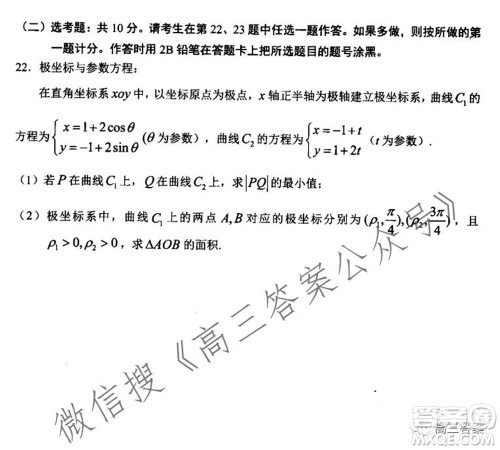 （二）选考题：共 10 分。请考生在第 22、23 题中任选一题作答。如果多做，则按所做的第
一题计分。作答时用 2B 铅笔在答题卡上把所选题目的题号涂黑。
22．极坐标与参数方程：
在直角坐标系 xoy 中，以坐标原点为极点，x 轴正半轴为极轴建立极坐标系，曲线 C₁ 的
方程为{x=1+2cosθ y=-1+2sinθ (θ 为参数)，曲线 C₂ 的方程为{x=-1+t y=1+2t (t 为参数).
（1）若 P 在曲线 C₁ 上，Q 在曲线 C₂ 上，求|PQ|的最小值；
（2）极坐标系中，曲线 C₁ 上的两点 A, B 对应的极坐标分别为 (ρ₁, π/4), (ρ₂, 3π/4)，且
ρ₁ > 0, ρ₂ > 0，求 ΔAOB 的面积.
微信搜《高三答案公众号》
高三答案